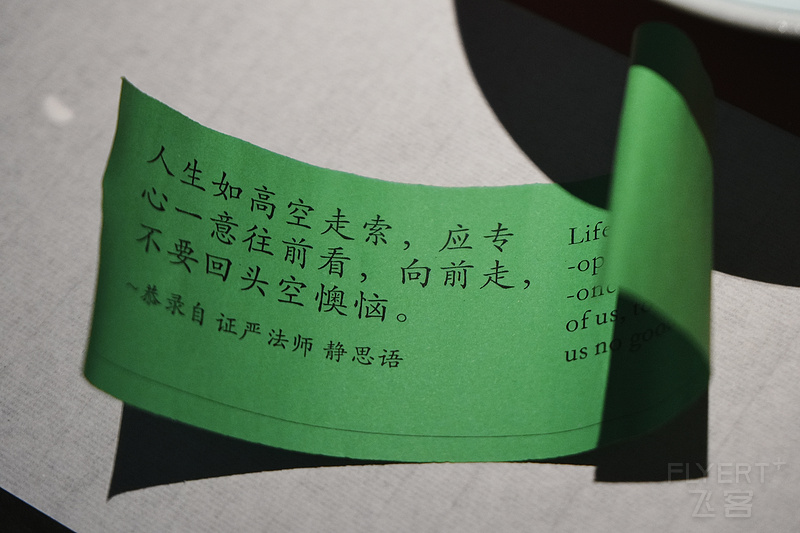 人生如高空走索，应专
心一意往前看，向前走，
不要回头空懊恼。
~恭录自 证严法师 静思语
Life
-op
-one
of us,
us no good.
FLYERT+
飞客